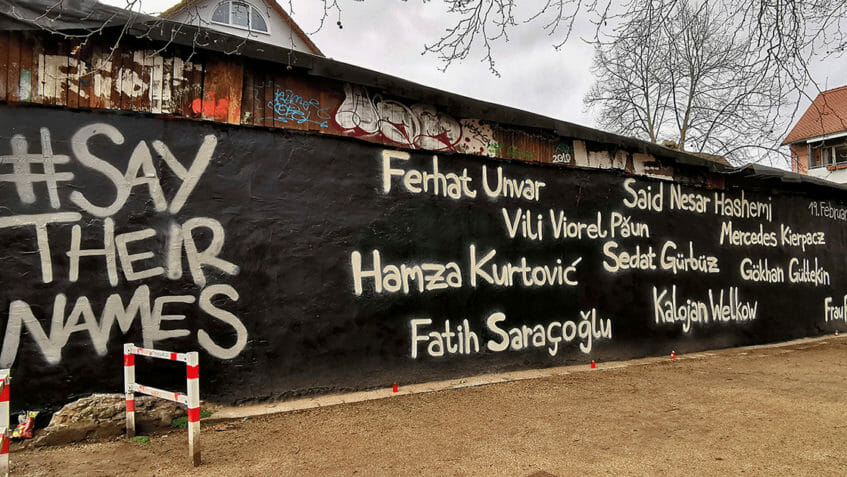 #SAY
THEIR
NAMES
Ferhat Unvar
Said Nesar Hashemi
19. Februar
Vili Viorel Păun
Mercedes Kierpacz
Hamza Kurtović
Sedat Gürbüz
Gökhan Gültekin
Kalojan Welkow
Frau
Fatih Saraçoğlu